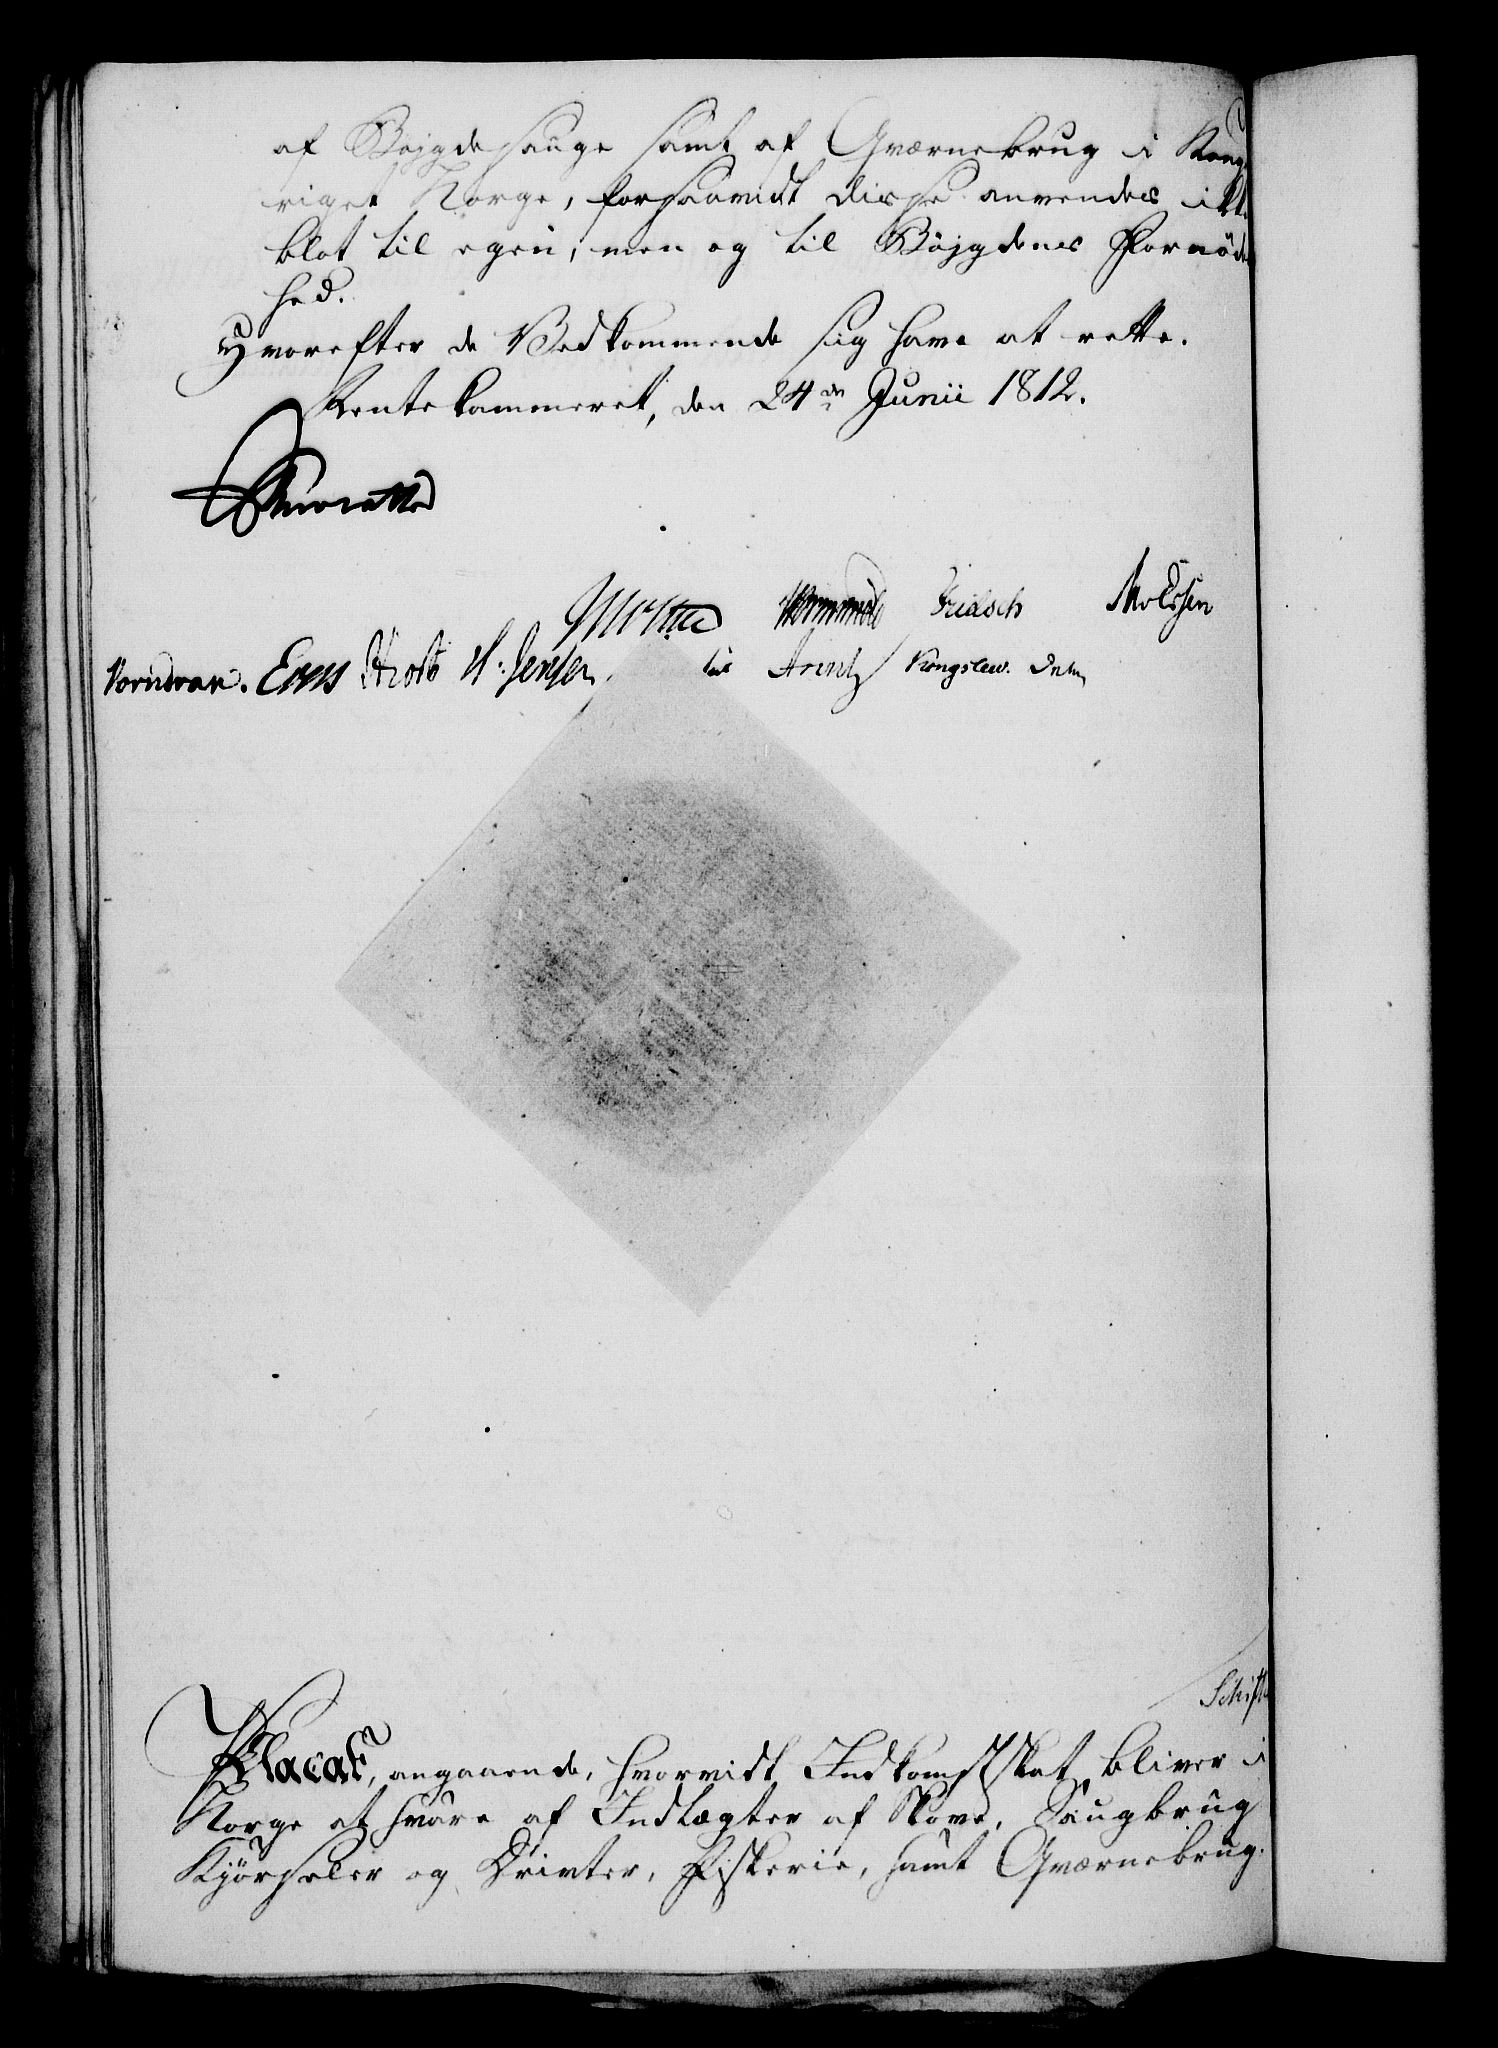 af Bøjgdesauge samt af Qværnebrug i Kong
riget Norge, forsaavidt disse anvendes ikke
blot til egen, men og til Bøjgdenes Fornøden
hed.
Hvorefter de Vedkommende sig have at rette.
Rentekammeret, den 24de Junii 1812.
Wormskiold Fridsch Mo&ssen
Vorndran. Eens H. Jensen Arentz Kongslew.
Schiftte
Placat, angaaende, hvorvidt Indkomstskat bliver i
Norge at svare af Indtægter af Skove, Saugbrug
Kjørseler og Drivter, Fiskerie, samt Qværnebrug.